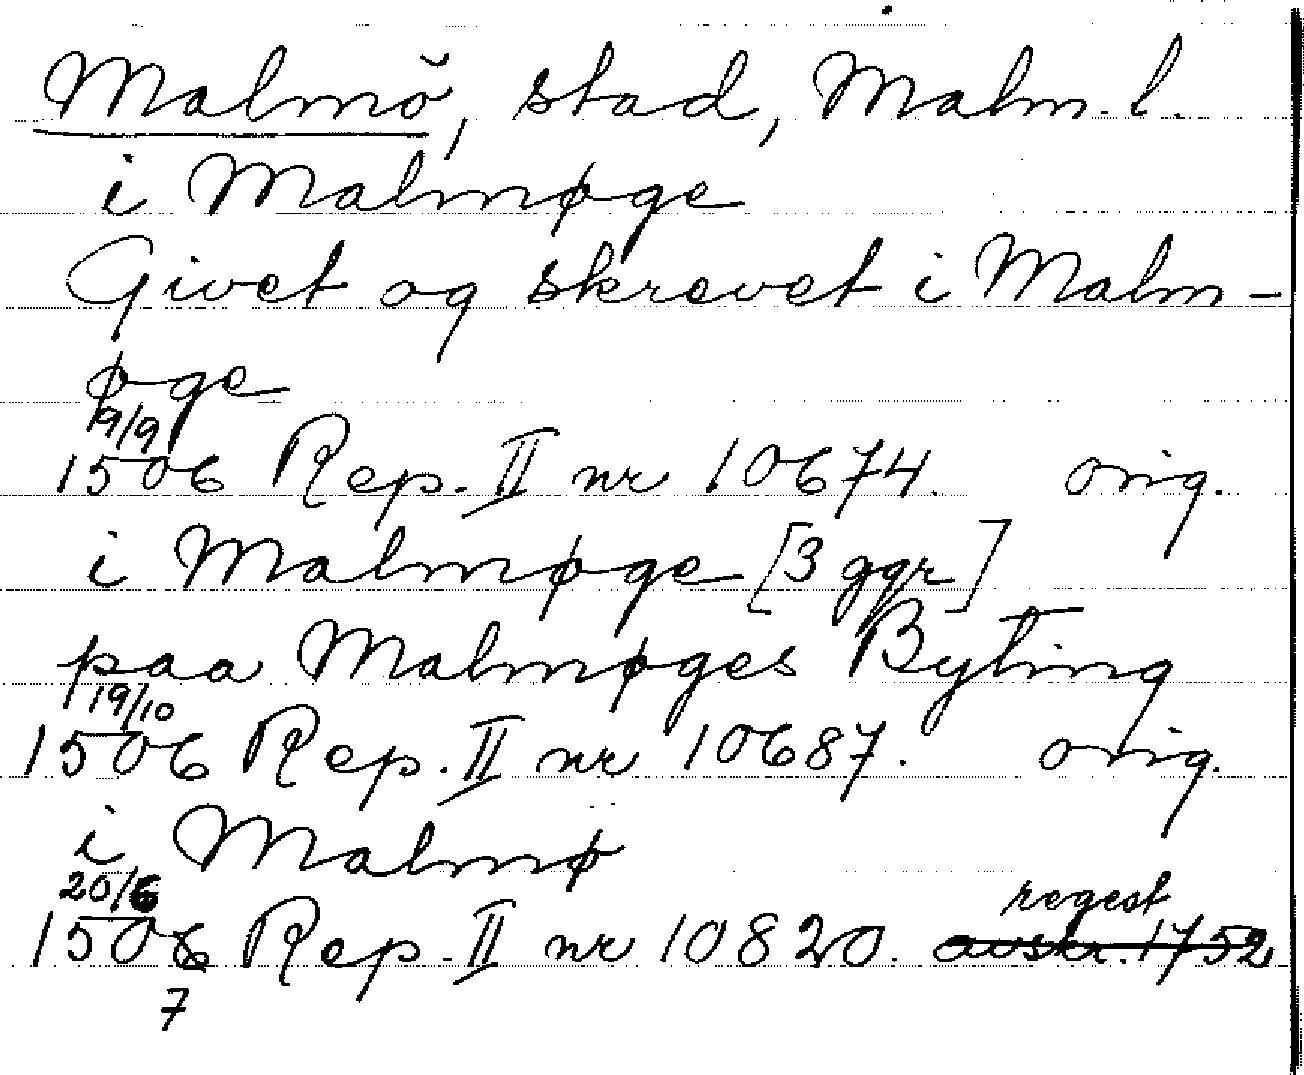 Malmö, stad, Malm. l.
i Malmøge
Givet og skrevet i Malm-
øge
9/9
1506 Rep. II nr 10674. orig.
i Malmøge [3 ggr]
paa Malmøges Byting
19/10
1506 Rep. II nr 10687. orig.
i Malmø
20/6 regest
1506 Rep. II nr 10820. avskr. 1752
7